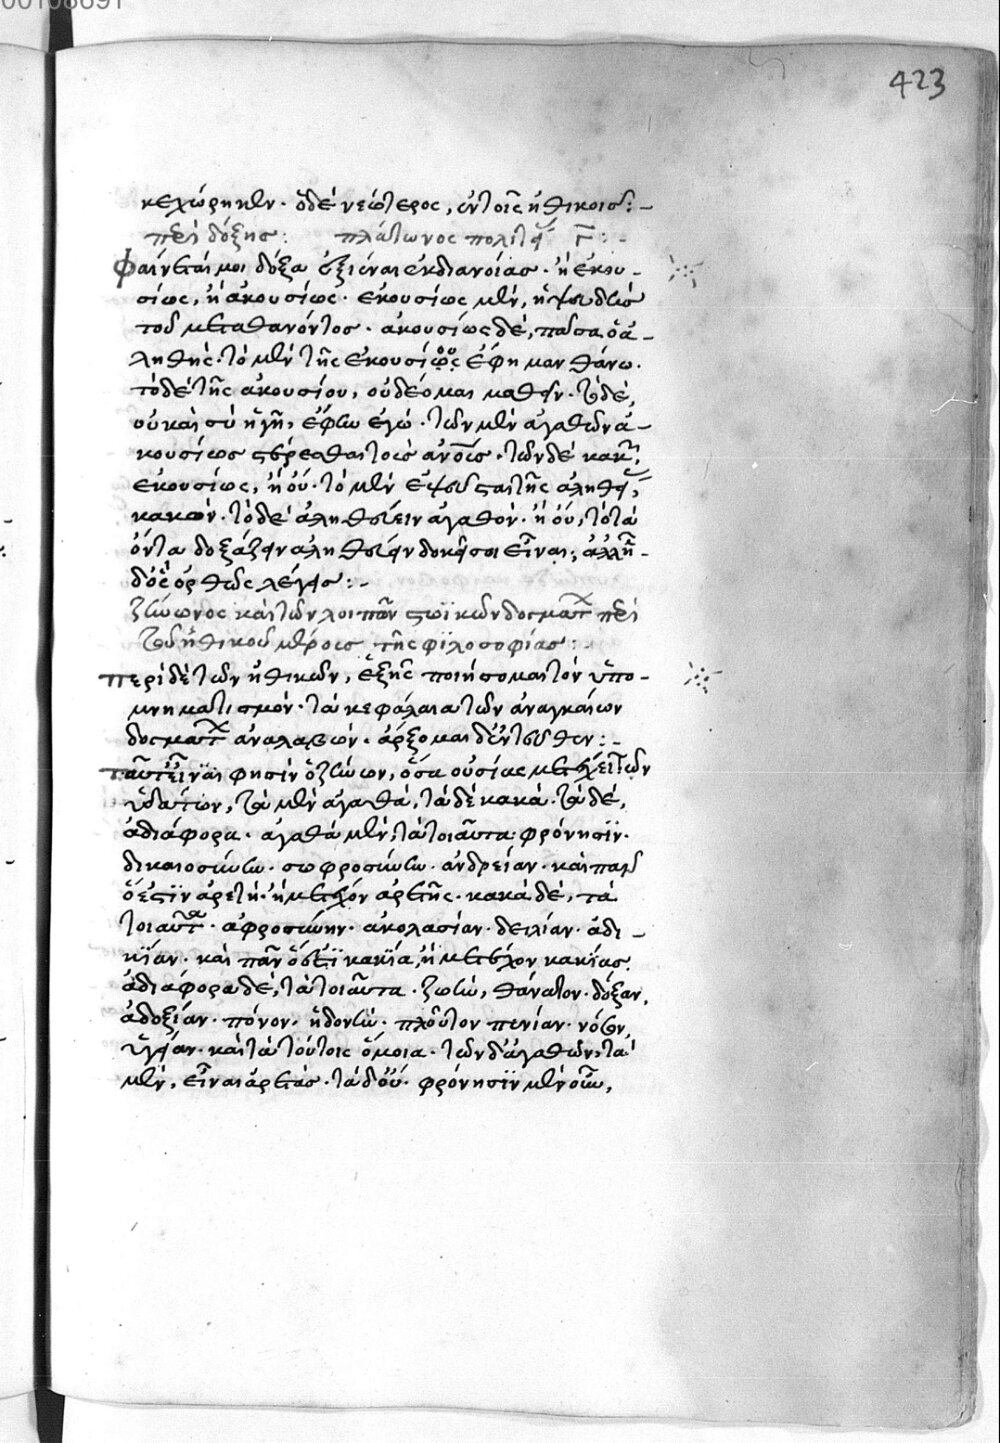 423
κεχώρηκεν· ὁ δὲ νεώτερος, ἐν τοῖς ἠθικοῖς:–
περὶ δόξης: πλάτωνος πολιτεί Γ:–
Φαίνεται μοι δόξα ἐξιέναι ἐκ διανοίας· ἢ ἑκου–
σίως, ἢ ἀκουσίως· ἑκουσίως μὲν, ἡ ψευδὴς
τοῦ μεταθανόντος· ἀκουσίως δὲ, πᾶσα ὁ ἀ–
ληθής· τὸ μὲν τῆς ἑκουσίου ἔφη μανθάνω·
τὸ δὲ τῆς ἀκουσίου, οὐ δέομαι μαθεῖν· τὸ δὲ,
οὐ καὶ σὺ ἡγῆ, ἔφην ἐγώ· τῶν μὲν ἀγαθῶν ἀ–
κουσίως στέρεσθαι τοὺς ἀνους· τῶν δὲ κακ,
ἑκουσίως, ἢ οὐ· τὸ μὲν ἐψεῦσται τῆς ἀληθεί,
κακὸν· τὸ δὲ ἀληθεύειν ἀγαθὸν· ἢ οὐ, τὸ τὰ
ὄντα δοξάζειν ἀληθεύειν δοκεῖ σοι εἶναι; ἀλλὴ–
δὸς ὀρθῶς λέγεις:–
ζήνωνος καὶ τῶν λοιπῶν στωϊκῶν δογματ περὶ
τοῦ ἠθικοῦ μέρους τῆς φιλοσοφίας:
περὶ δὲ τῶν ἠθικῶν, ἑξῆς ποιήσομαι τὸν ὑπο–
μνηματισμὸν· τὰ κεφάλαια τῶν ἀναγκαίων
δογματ ἀναλαβών· ἄρξομαι δ' ἐντεῦθεν:–
ταῦτ' εἶναί φησιν ὁ ζήνων, ὅσα οὐσίας μετέχει τῶν
ὑδάτων, τὰ μὲν ἀγαθὰ, τὰ δὲ κακὰ· τὰ δὲ,
ἀδιάφορα· ἀγαθὰ μὲν, τὰ τοιαῦτα: φρόνησιν·
δικαιοσύνην· σωφροσύνην· ἀνδρείαν· καὶ πᾶν
ὅ ἐστιν ἀρετὴ· ἢ μετέχον ἀρετῆς· κακὰ δὲ, τὰ
τοιαῦτα· ἀφροσύνην· ἀκολασίαν· δειλίαν· ἀδι–
κίαν· καὶ πᾶν ὅ ἐστι κακία, ἢ μετέχον κακίας.
ἀδιάφορα δὲ, τὰ τοιαῦτα· ζωὴν, θάνατον· δόξαν,
ἀδοξίαν· πόνον· ἡδονὴν· πλοῦτον πενίαν· νόσον,
ὑγείαν· καὶ τὰ τούτοις ὅμοια· τῶν δ' ἀγαθῶν, τὰ
μὲν, εἶναι ἀρετὰς· τὰ δ' οὔ· φρόνησιν μὲν οὖν,